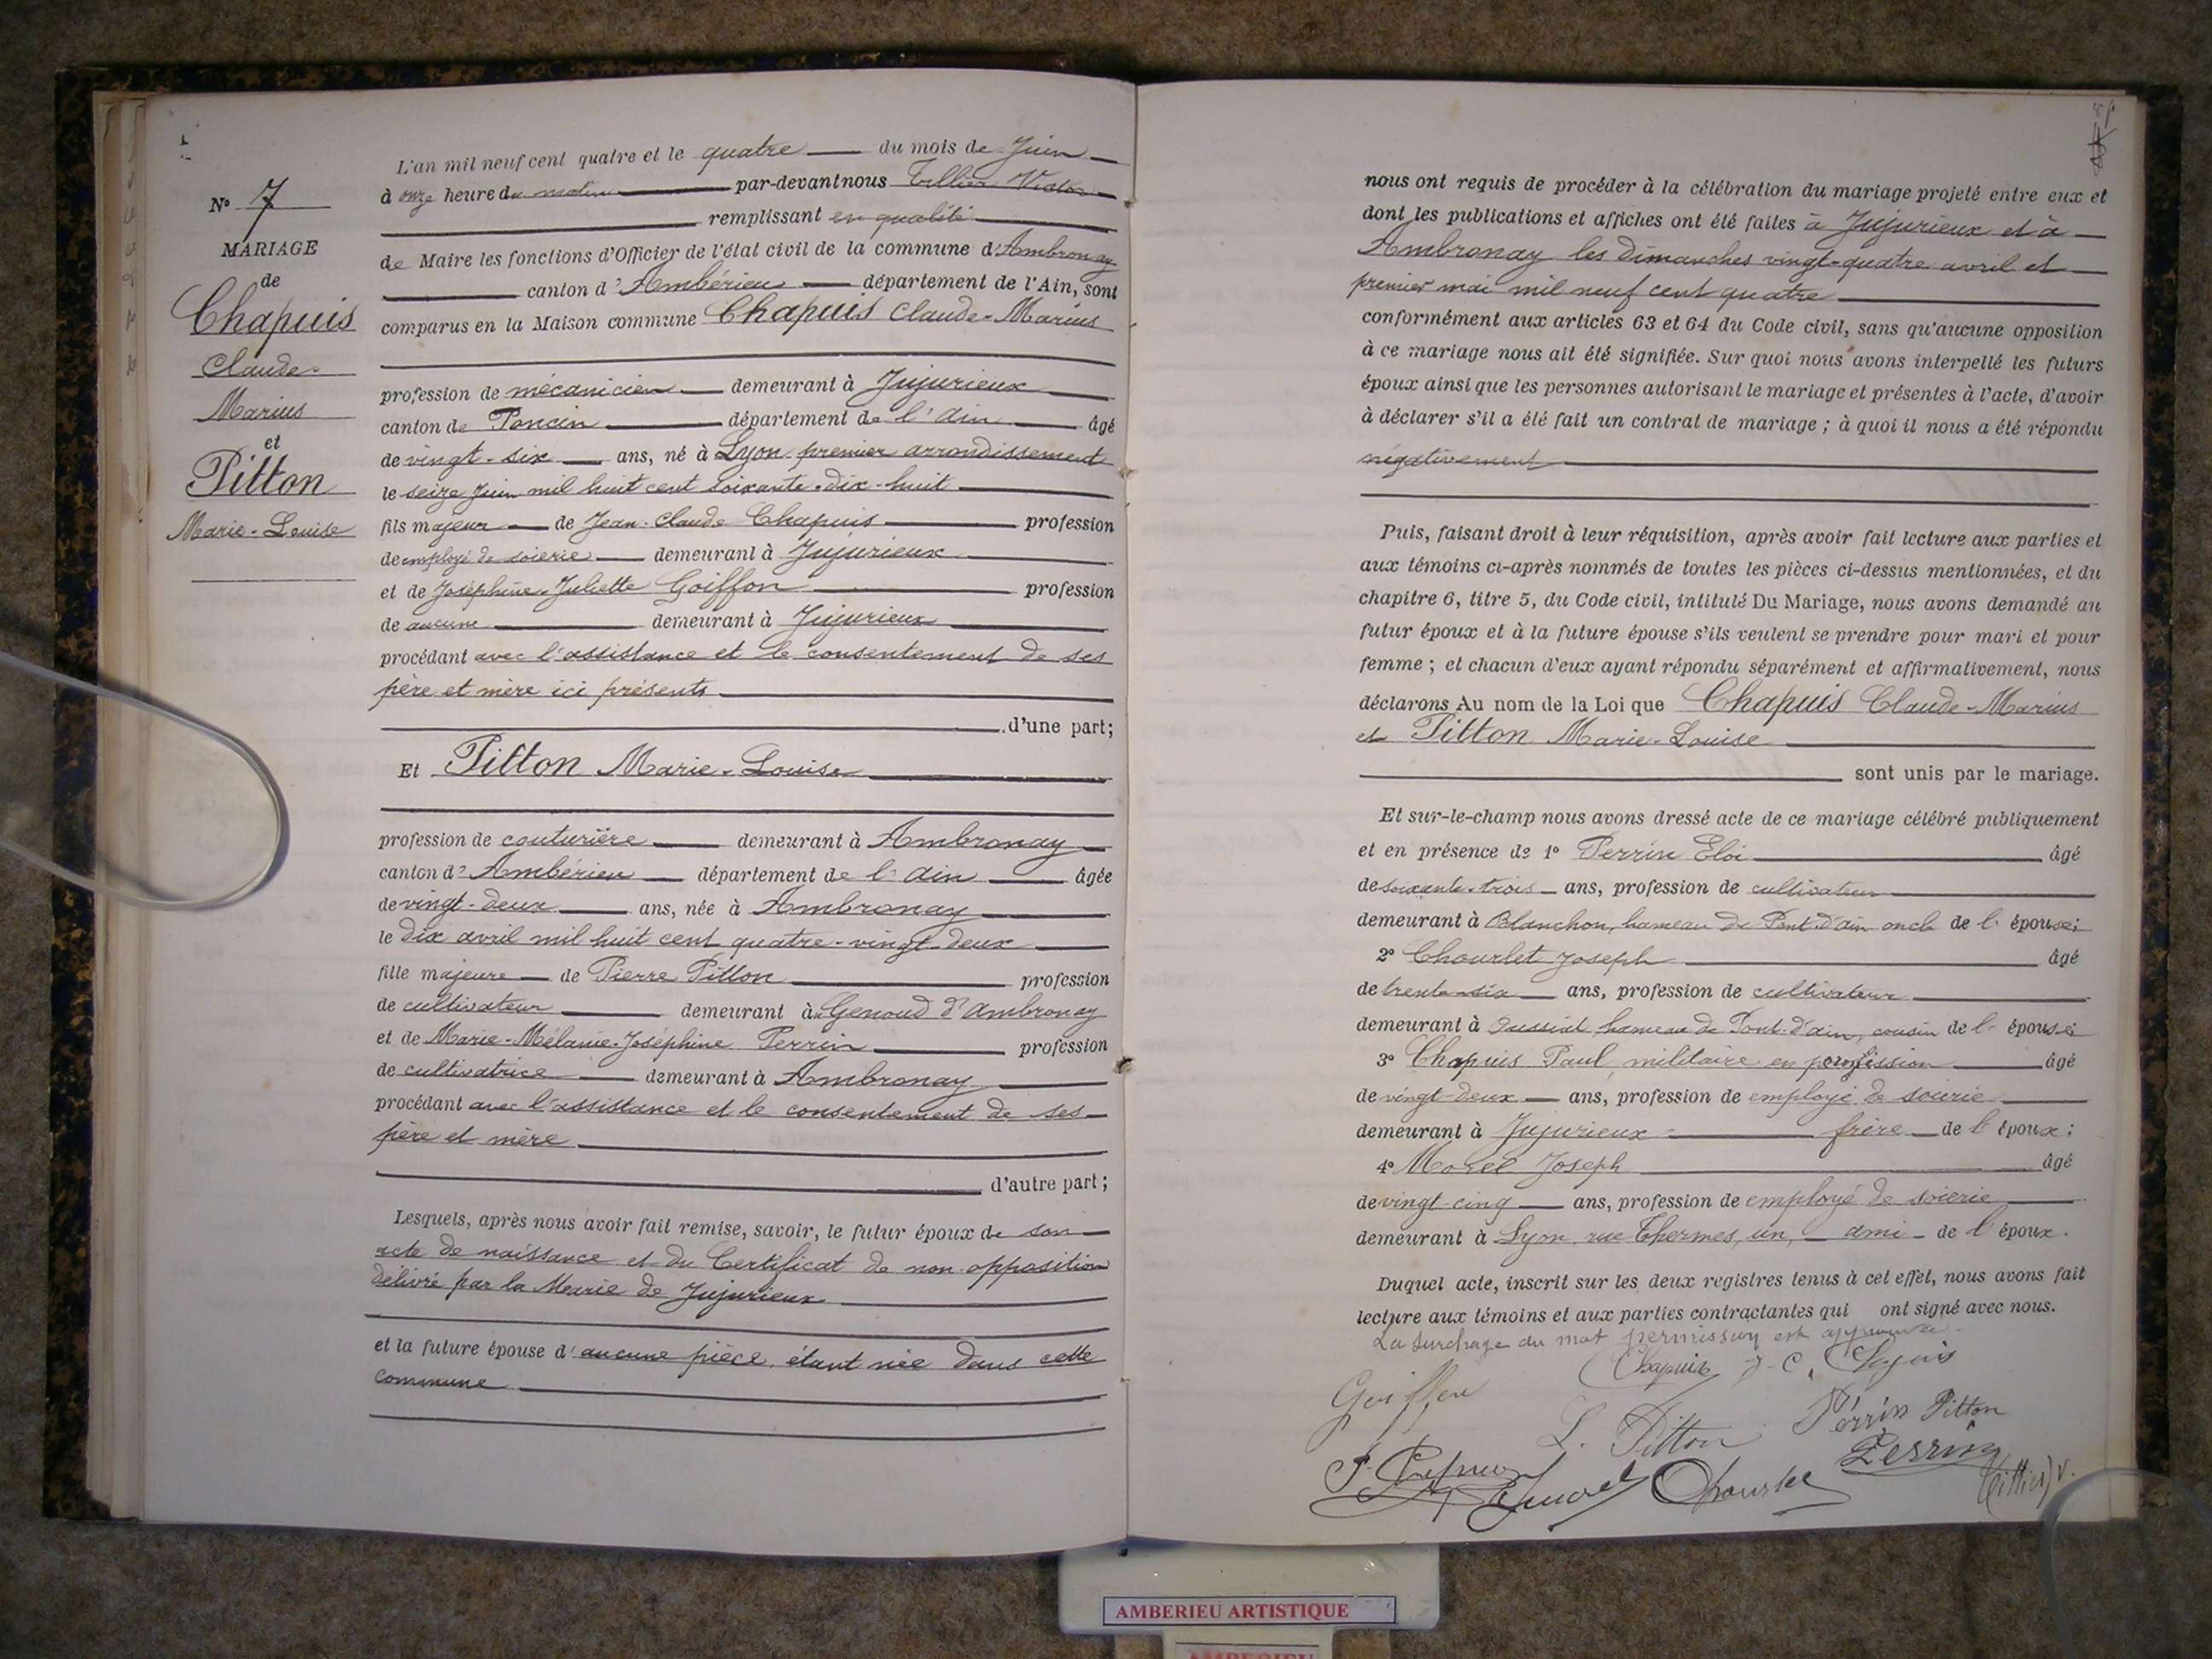 L'an mil neuf cent quatre et le quatre du mois de Juin
à onze heure du matin par-devant nous Tillier Victor
remplissant en qualité
de Maire les fonctions d'Officier de l'état civil de la commune d'Ambronay
canton d'Ambérieu département de l'Ain, sont
comparus en la Maison commune Chapuis Claude-Marius
profession de mécanicien demeurant à Jujurieux
canton de Poncin département de l'Ain âgé
de vingt-six ans, né à Lyon premier arrondissement
le seize Juin mil huit cent soixante-dix-huit
fils majeur de Jean-Claude Chapuis profession
de employé de soierie demeurant à Jujurieux
et de Joséphine-Juliette Goiffon profession
de aucune demeurant à Jujurieux
procédant avec l'assistance et le consentement de ses
père et mère ici présents
d'une part;
Et Pitton Marie-Louise
profession de couturière demeurant à Ambronay
canton d'Ambérieu département de l'Ain âgée
de vingt-deux ans, née à Ambronay
le dix avril mil huit cent quatre-vingt-deux
fille majeure de Pierre Pitton profession
de cultivateur demeurant à Genoud d'Ambronay
et de Marie-Mélanie-Joséphine Perrin profession
de cultivatrice demeurant à Ambronay
procédant avec l'assistance et le consentement de ses
père et mère
d'autre part;
Lesquels, après nous avoir fait remise, savoir, le futur époux de son
acte de naissance et du Certificat de non opposition
délivré par la Mairie de Jujurieux
et la future épouse d'aucune pièce, étant née dans cette
commune
N° 7
MARIAGE
de
Chapuis
Claude-
Marius
et
Pitton
Marie-Louise
nous ont requis de procéder à la célébration du mariage projeté entre eux et
dont les publications et affiches ont été faites à Jujurieux et à
Ambronay les dimanches vingt-quatre avril et
premier mai mil neuf cent quatre
conformément aux articles 63 et 64 du Code civil, sans qu'aucune opposition
à ce mariage nous ait été signifiée. Sur quoi nous avons interpellé les futurs
époux ainsi que les personnes autorisant le mariage et présentes à l'acte, d'avoir
à déclarer s'il a été fait un contrat de mariage; à quoi il nous a été répondu
négativement
Puis, faisant droit à leur réquisition, après avoir fait lecture aux parties et
aux témoins ci-après nommés de toutes les pièces ci-dessus mentionnées, et du
chapitre 6, titre 5, du Code civil, intitulé Du Mariage, nous avons demandé au
futur époux et à la future épouse s'ils veulent se prendre pour mari et pour
femme; et chacun d'eux ayant répondu séparément et affirmativement, nous
déclarons Au nom de la Loi que Chapuis Claude-Marius
et Pitton Marie-Louise
sont unis par le mariage.
Et sur-le-champ nous avons dressé acte de ce mariage célébré publiquement
et en présence de 1° Perrin Eloi âgé
de soixante-trois ans, profession de cultivateur
demeurant à Blanchon, hameau de Pont-d'ain oncle de l'épouse;
2° Chourlet Joseph âgé
de trente-six ans, profession de cultivateur
demeurant à hameau de Pont-d'ain, cousin de l'épouse
3° Chapuis Paul, militaire en permission âgé
de vingt-deux ans, profession de employé de soierie
demeurant à Jujurieux frère de l'époux;
4° Morel Joseph âgé
de vingt-cinq ans, profession de employé de soierie
demeurant à Lyon, rue Thermes, un, ami de l'époux.
Duquel acte, inscrit sur les deux registres tenus à cet effet, nous avons fait
lecture aux témoins et aux parties contractantes qui ont signé avec nous.
La surcharge du mot permission est approuvée
Chapuis J-C,
Goiffon
L. Pitton
Perrin Pitton
Perrin
Tillier V.
AMBERIEU ARTISTIQUE
AMBERIEU